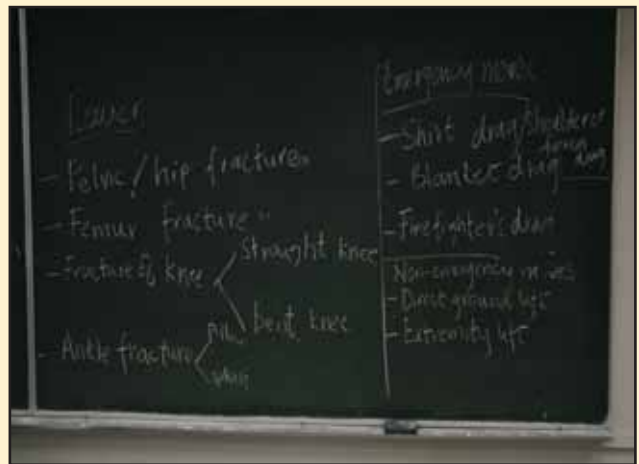 Lower
- Pelvic / hip fracture
- Femur fracture
- Fracture of knee
straight knee
bent knee
- Ankle fracture
Emergency moves
- Shirt drag / Shoulder or
drag
- Blanket drag
- Firefighter's drag
Non-emergency moves
- Direct ground lift
- Extremity lift